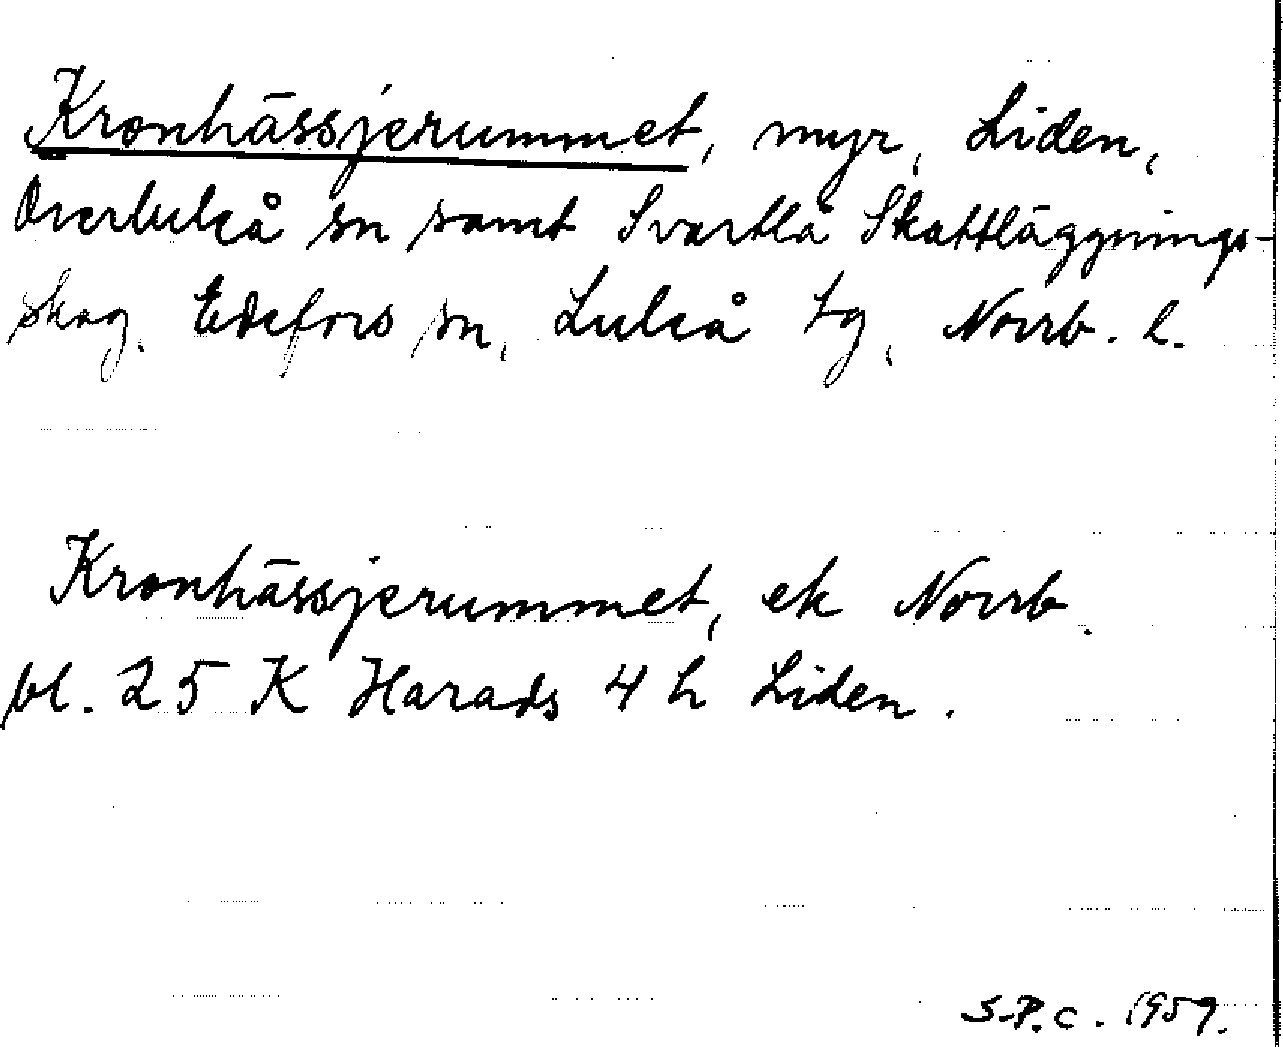 Kronhässjerummet, myr, Liden,
Överluleå sn samt Svartlå Skattläggnings-
skog, Edefors sn, Luleå tg, Norrb. l.
Kronhässjerummet, ek Norrb.
bl. 25 K Harads 4 h Liden.
S.P.C. 1959.